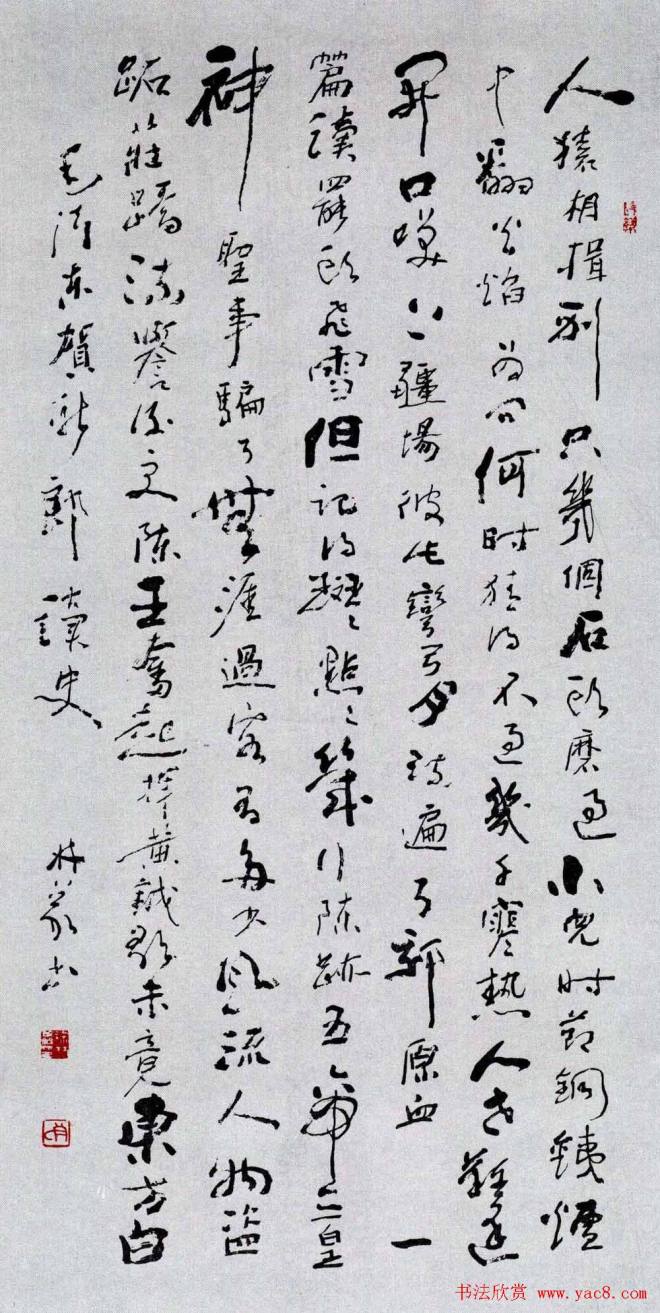 人猿相揖别只幾個石頭磨過小兒时節銅鐵爐
中翻火焰為問何时猜得不過幾千寒熱人世難逢
開口笑上疆場彼此彎弓月流遍了郊原血一
篇讀罷頭飛雪但記得斑〻點〻幾行陳跡五帝三皇
神聖事騙了無涯過客有多少風流人物盜
跖莊蹻流譽後更陳王奮起揮黄鉞歌未竟東方白
毛澤东賀新郎讀史
书法欣赏 www.yac8.com